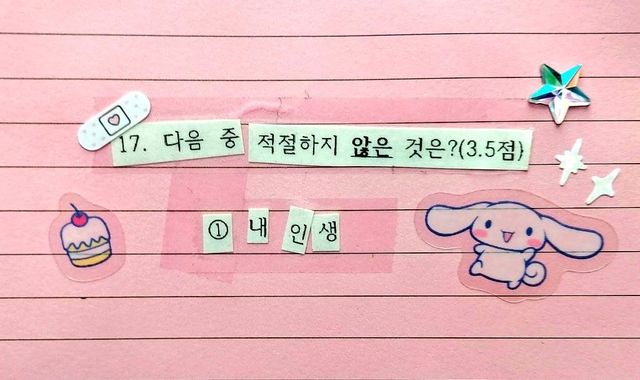 17. 다음 중 적절하지 않은 것은?(3.5점)
① 내 인생